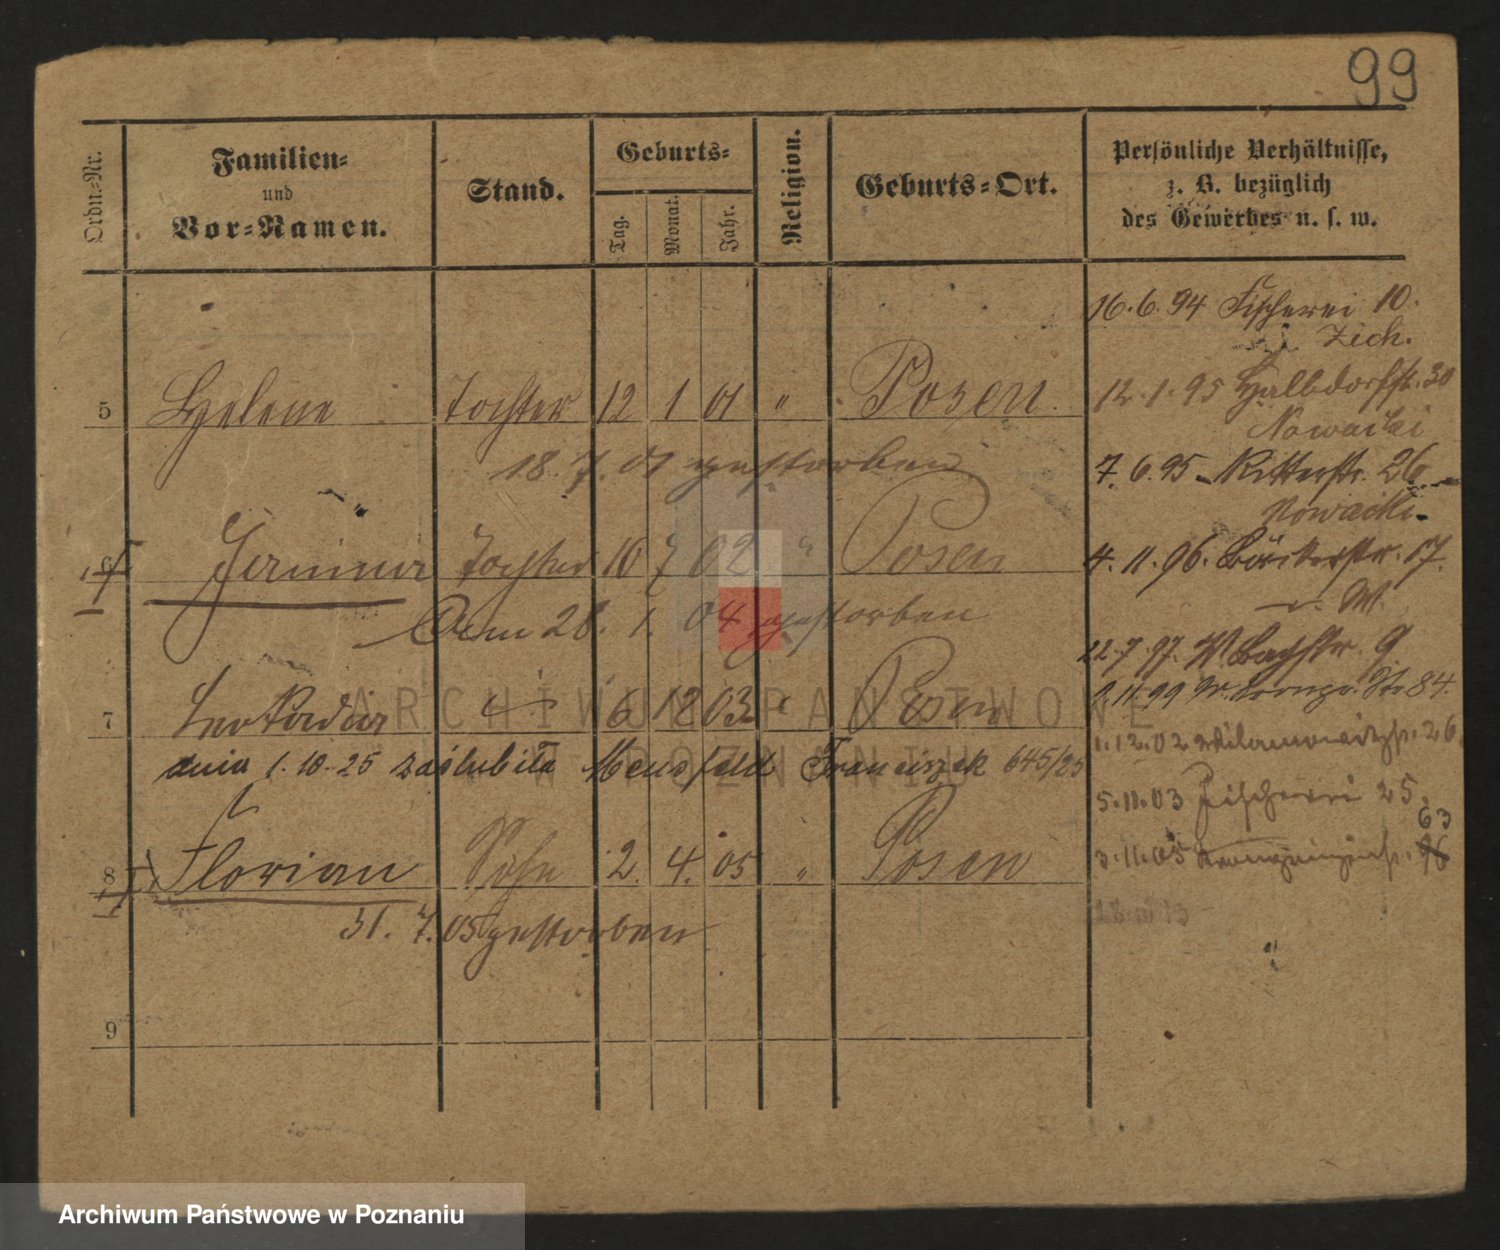 99
Ordn.-Nr. Familien- und Vor-Namen. Stand. Geburts- Tag. Monat. Jahr. Religion. Geburts-Ort. Persönliche Verhältnisse, z. B. bezüglich des Gewerbes u. s. w.
16.6.94 Fischerei 10.
Zich.
5 Helene Tochter 12 1 01 " Posen
12.1.95 Halbdorfstr. 30
Nowacki
18.7.01 gestorben
7.6.95 Ritterstr. 26
Nowacki.
6 Janina Tochter 10 7 02 " Posen
4.11.96. Bäckerstr. 17.
W.
Am 28. 1. 04 gestorben
22.7.97. W Bachstr. 9
7 Leokadia " 6 12 03 " Posen
2.11.99 Kronpr. Str 84.
1.12.02 26
dnia 1.10.25 zaślubiła Mensfeld Franciszek 645/25
5.11.03 Fischerei 25
63
8 Florian Sohn 2. 4. 05 " Posen
3.11.05 Kronprinzenstr. 96
31. 7. 05 gestorben
9
ARCHIWUM PAŃSTWOWE
W POZNANIU
Archiwum Państwowe w Poznaniu